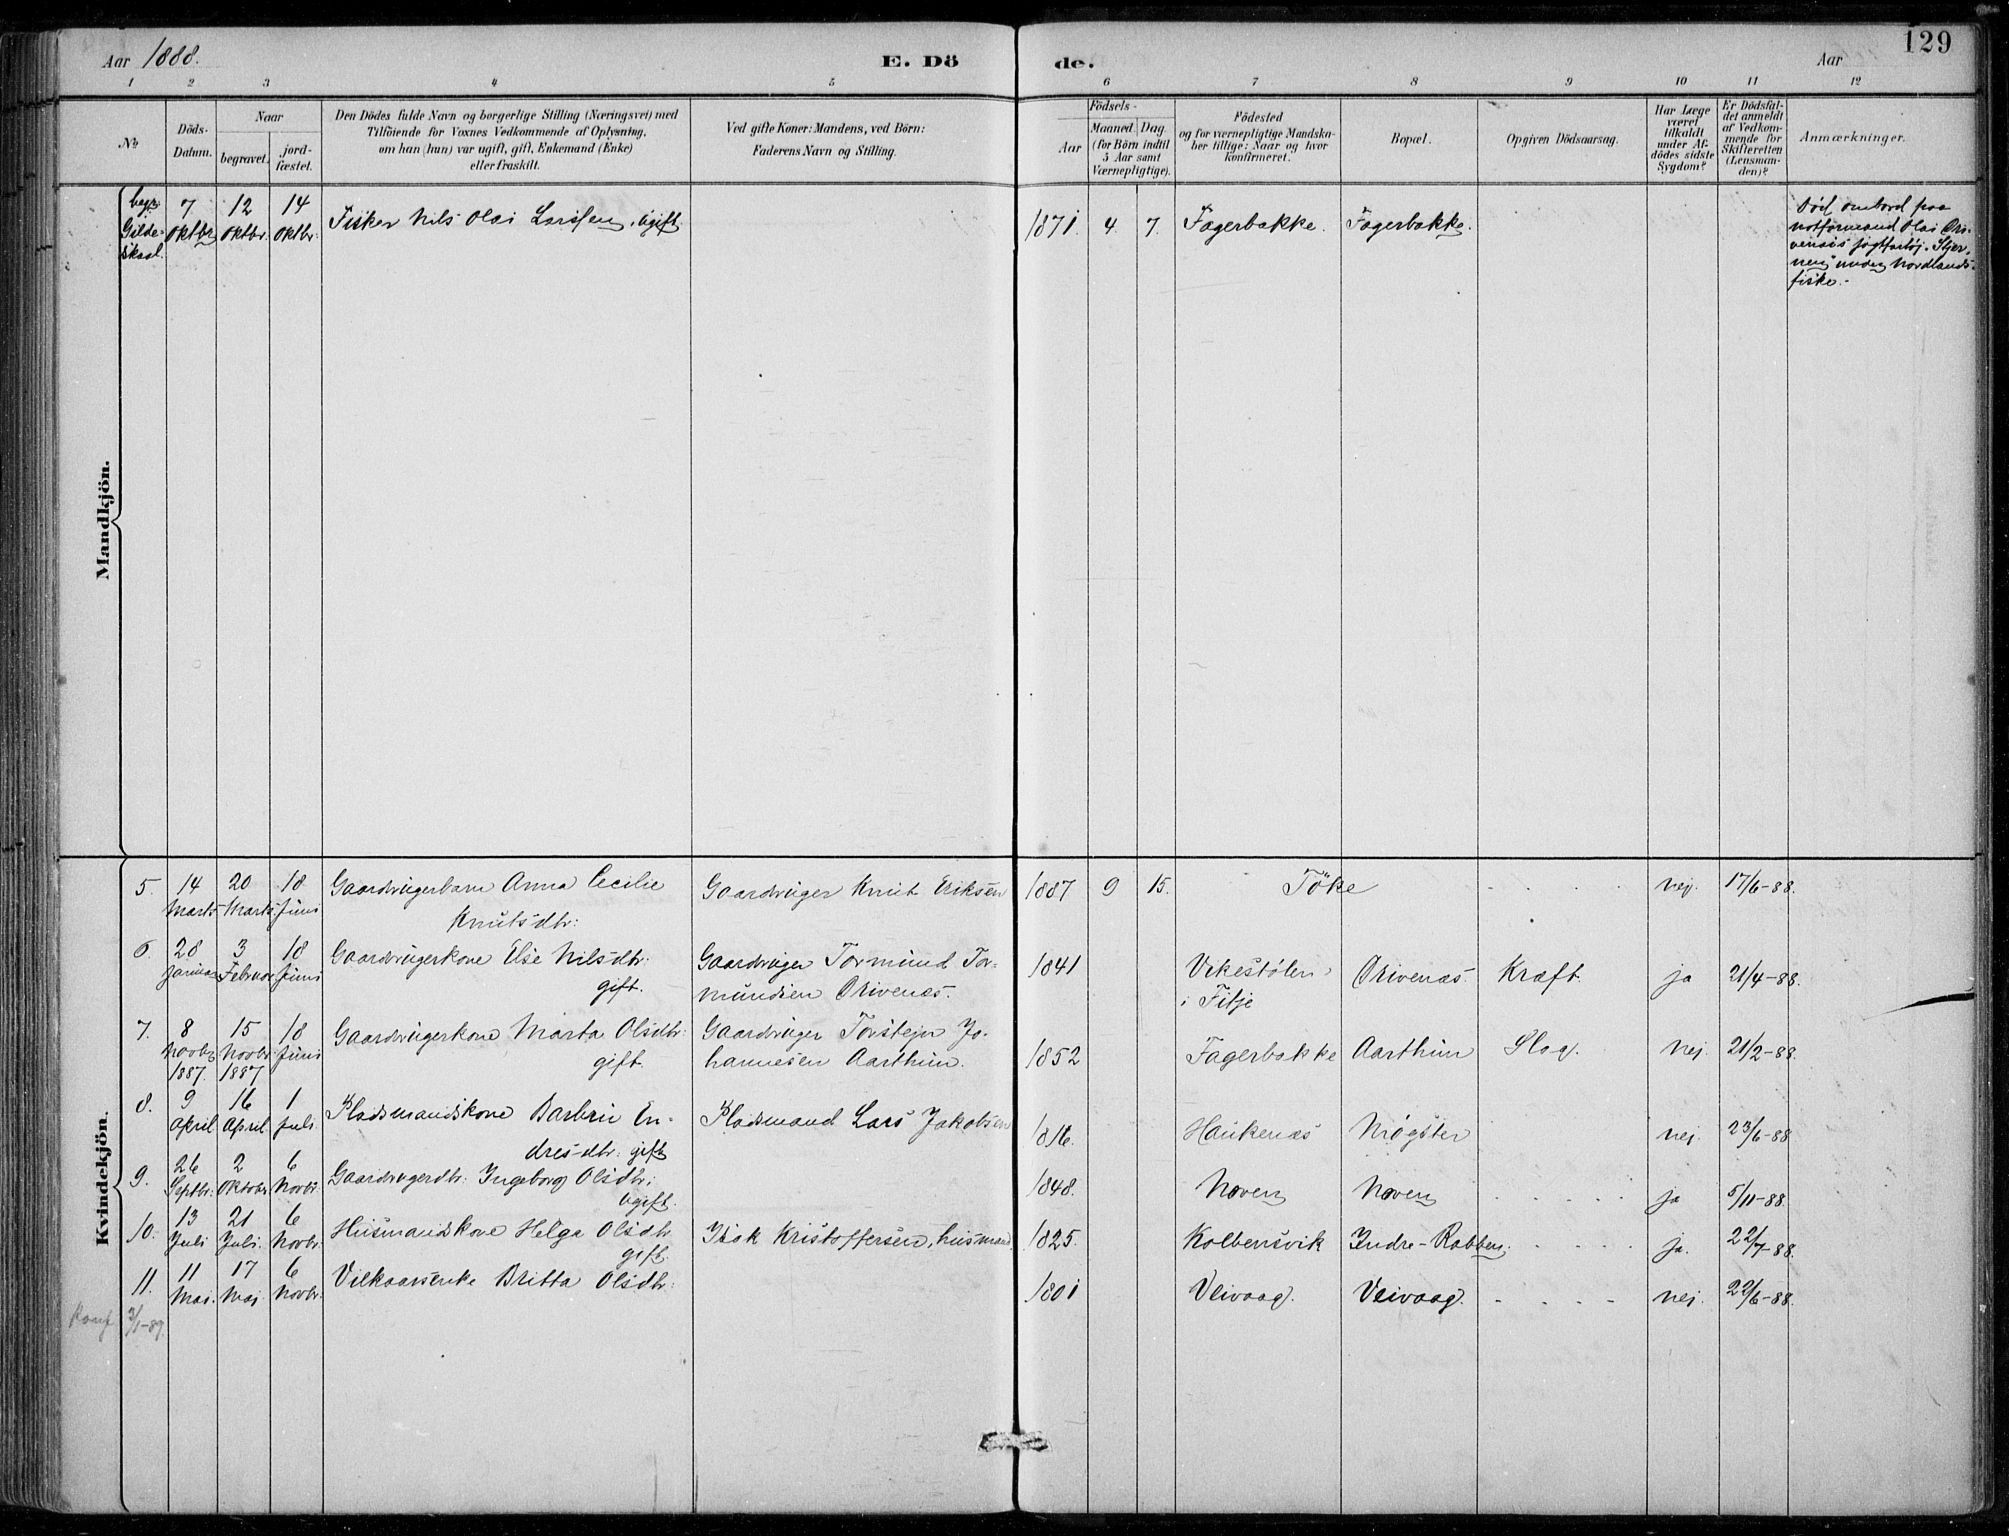 129
Aar 1888.
E. Dö
de.
Aar
1 2 3 4 5 6 7 8 9 10 11 12
№
Döds-
Datum.
Naar
begravet.
jord-
fæstet.
Den Dödes fulde Navn og borgerlige Stilling (Næringsvei) med
Tilföiende for Voxnes Vedkommende af Oplysning,
om han (hun) var ugift, gift, Enkemand (Enke)
eller fraskilt.
Ved gifte Koner: Mandens, ved Börn:
Faderens Navn og Stilling.
Födsels-
Aar
Maaned. Dag.
(for Börn indtil
5 Aar samt
Værnepligtige).
Födested
og for værnepligtige Mandska-
ber tillige: Naar og hvor
konfirmeret.
Bopæl.
Opgiven Dödsaarsag.
Har Læge
været
tilkaldt
under Af-
dödes sidste
Sygdom?
Er Dödsfal-
det anmeldt
af Vedkom-
mende for
Skifteretten
(Lensman-
den)?
Anmærkninger.
Mandkjön.
Gilde-
skaal
7
Oktbr
12
Oktbr.
14
Oktbr.
Fisker Nils Olai Larssen, ugift.
1871. 4. 7. Fagerbakke. Fagerbakke.
Död ombord paa
notformand Olai Dri-
venæs jagtfartöj "Stjer-
nen" under Nordlands-
fiske.-
Kvindekjön.
5. 14
Marts
20
Marts
18
Juni
Gaardbrugerbarn Anna Cecilie
Knutsdtr:
Gaardbruger Knut Eriksen
1887 9 15. Töke - - - - nej. 17/6-88.
6. 28
Januar
3
Februar
18
Juni
Gaardbrugerkone Else Nilsdtr.
gift.
Gaardbruger Tormund Tor-
mundsen Drivenæs.
1841 Vikestølen
i Fitje
Drivenæs. Kræft. ja 21/4-88.
7. 8
Novbr
1887.
15
Novbr
1887
18
Juni
Gaardbrugerkone Marta Olsdtr:
gift.
Gaardbruger Torstejn Jo-
hannesen Aarthun.
1852 Fagerbakke Aarthun Slag. nej. 21/2-88.
8. 9
April
16
April
1
Juli
Pladsmandskone Barbru En-
dresdtr: gift
Pladsmand Lars Jakobsen
1816. Haukenæs Møgster nej. 23/6-88
9. 26
Septbr.
2
Oktober
6
Novbr.
Gaardbrugerdtr: Ingeborg Olsdtr;
ugift.
1848. Noven Noven - - - - ja 5/11-88.
10. 13
Juli
21
Juli.
6
Novbr.
Husmandskone Helga Olsdtr
gift.
Isak Kristoffersen, husmand
1825. Kolbensvik Indre-Robben. - - - - ja. 22/7-88.
11. 11
Mai.
17
Mai
6
Novbr.
Vilkaarsenke Britta Olsdtr:
1801 Veivaag. Veivaag. - - - - nej. 22/6-88.
Konf 3/1-89.